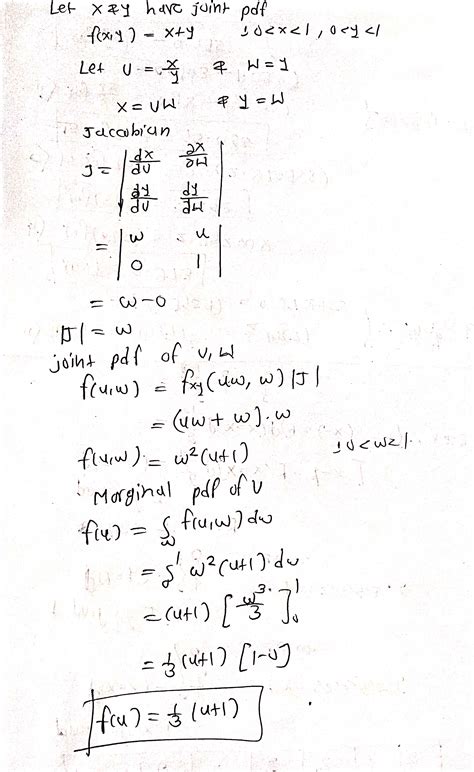 Let x & y have joint pdf
f(x,y) = x+y ; 0<x<1, 0<y<1
Let U = x/y & W = y
x = UW & y = W
Jacobian
J = | dx/du ∂x/∂w |
| dy/du dy/dw |
= | w u |
| 0 1 |
= w-0
|J| = w
joint pdf of U, W
f(u,w) = fxy(uw, w) |J|
= (uw + w) . w
f(u,w) = w²(u+1) ; 0<w<1
Marginal pdf of U
f(u) = ∫w f(u,w) dw
= ∫¹ w² (u+1) dw
= (u+1) [w³/3]¹₀
= 1/3 (u+1) [1-0]
f(u) = 1/3 (u+1)